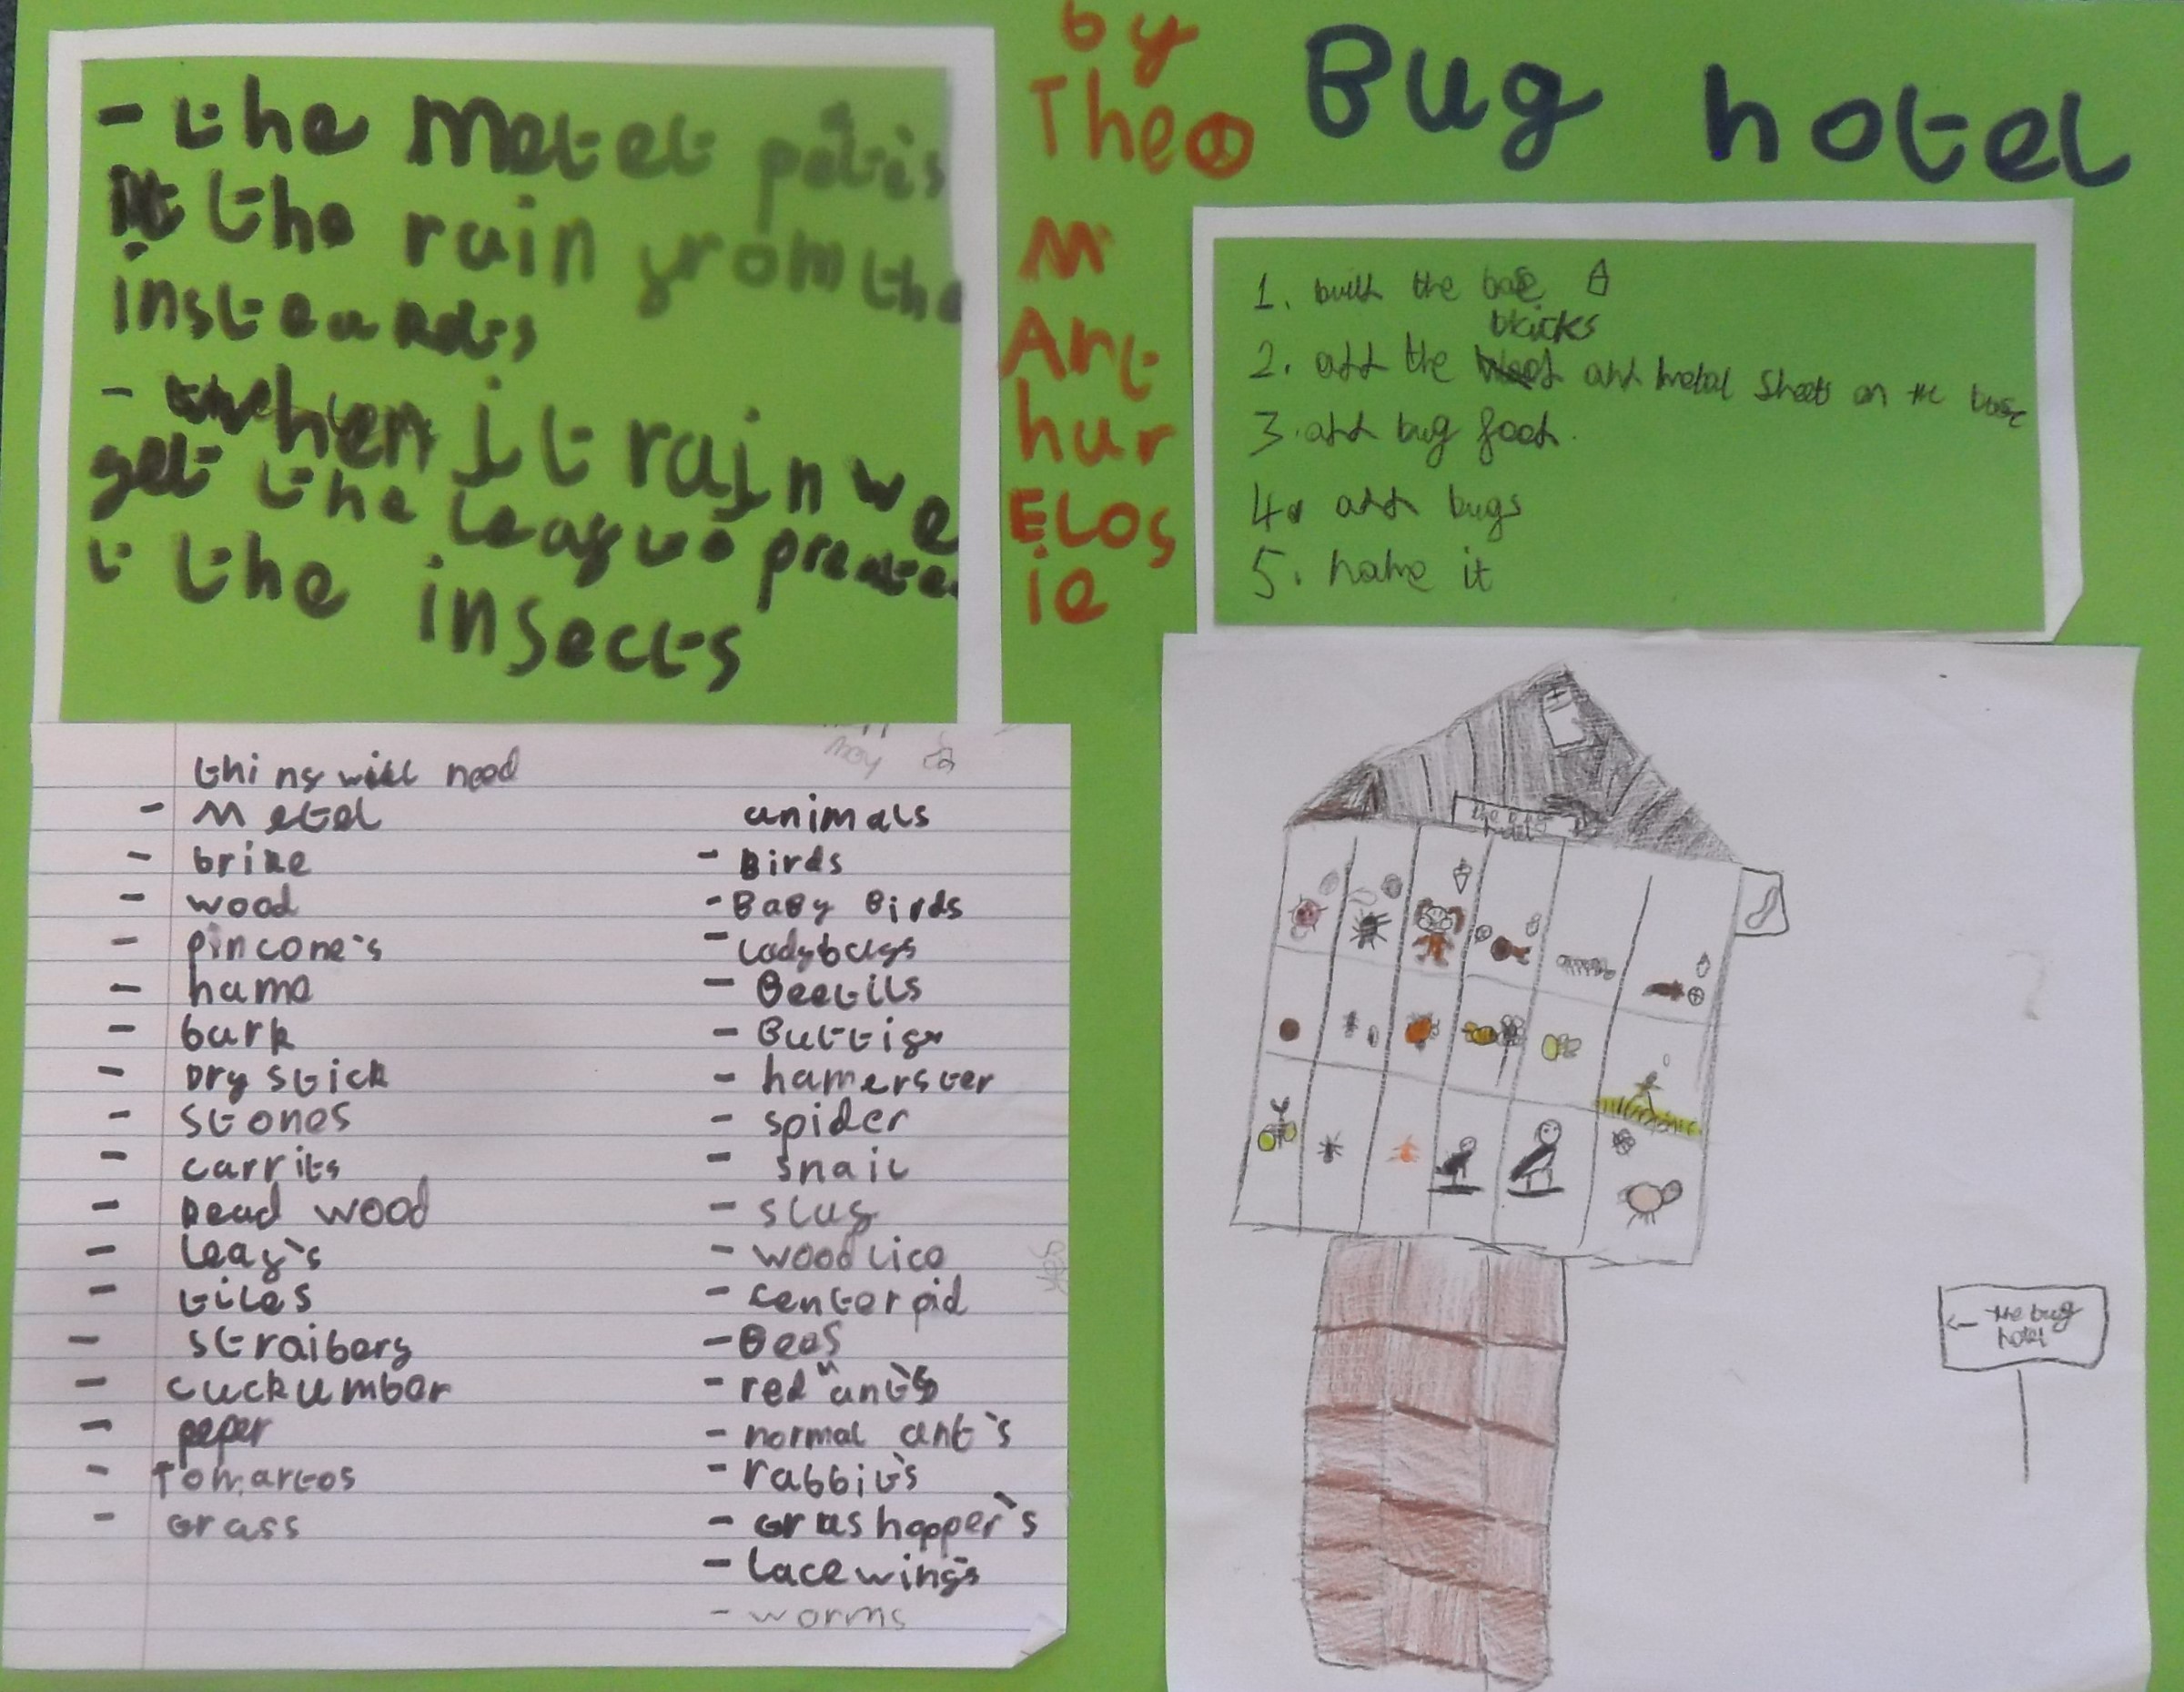 Bug hotel
by
Theo
M
Art
hur
Elos
ie
- the Metel
the rain from the
insteards
- when it rain we
get the leag to
t the insects
1. built the base
bricks
2. add the and metal sheets on the base
3. add bug food.
4. add bugs
5. name it
thing will need
- Metel
- brike
- wood
- pincone's
- hame
- bark
- Dry stick
- stones
- carrits
- Dead wood
- leag's
- tiles
- straibery
- cuckumber
- peper
- Tomartos
- Grass
may
animals
- Birds
- Baby Birds
- Ladybugs
- Beetils
- hamerster
- spider
- snail
- slug
- wood lice
- centerpid
- Bees
- red ants
- normal ant's
- rabbits
- Grashopper's
- lacewings
- worms
the bug
hotel
← the bug
hotel